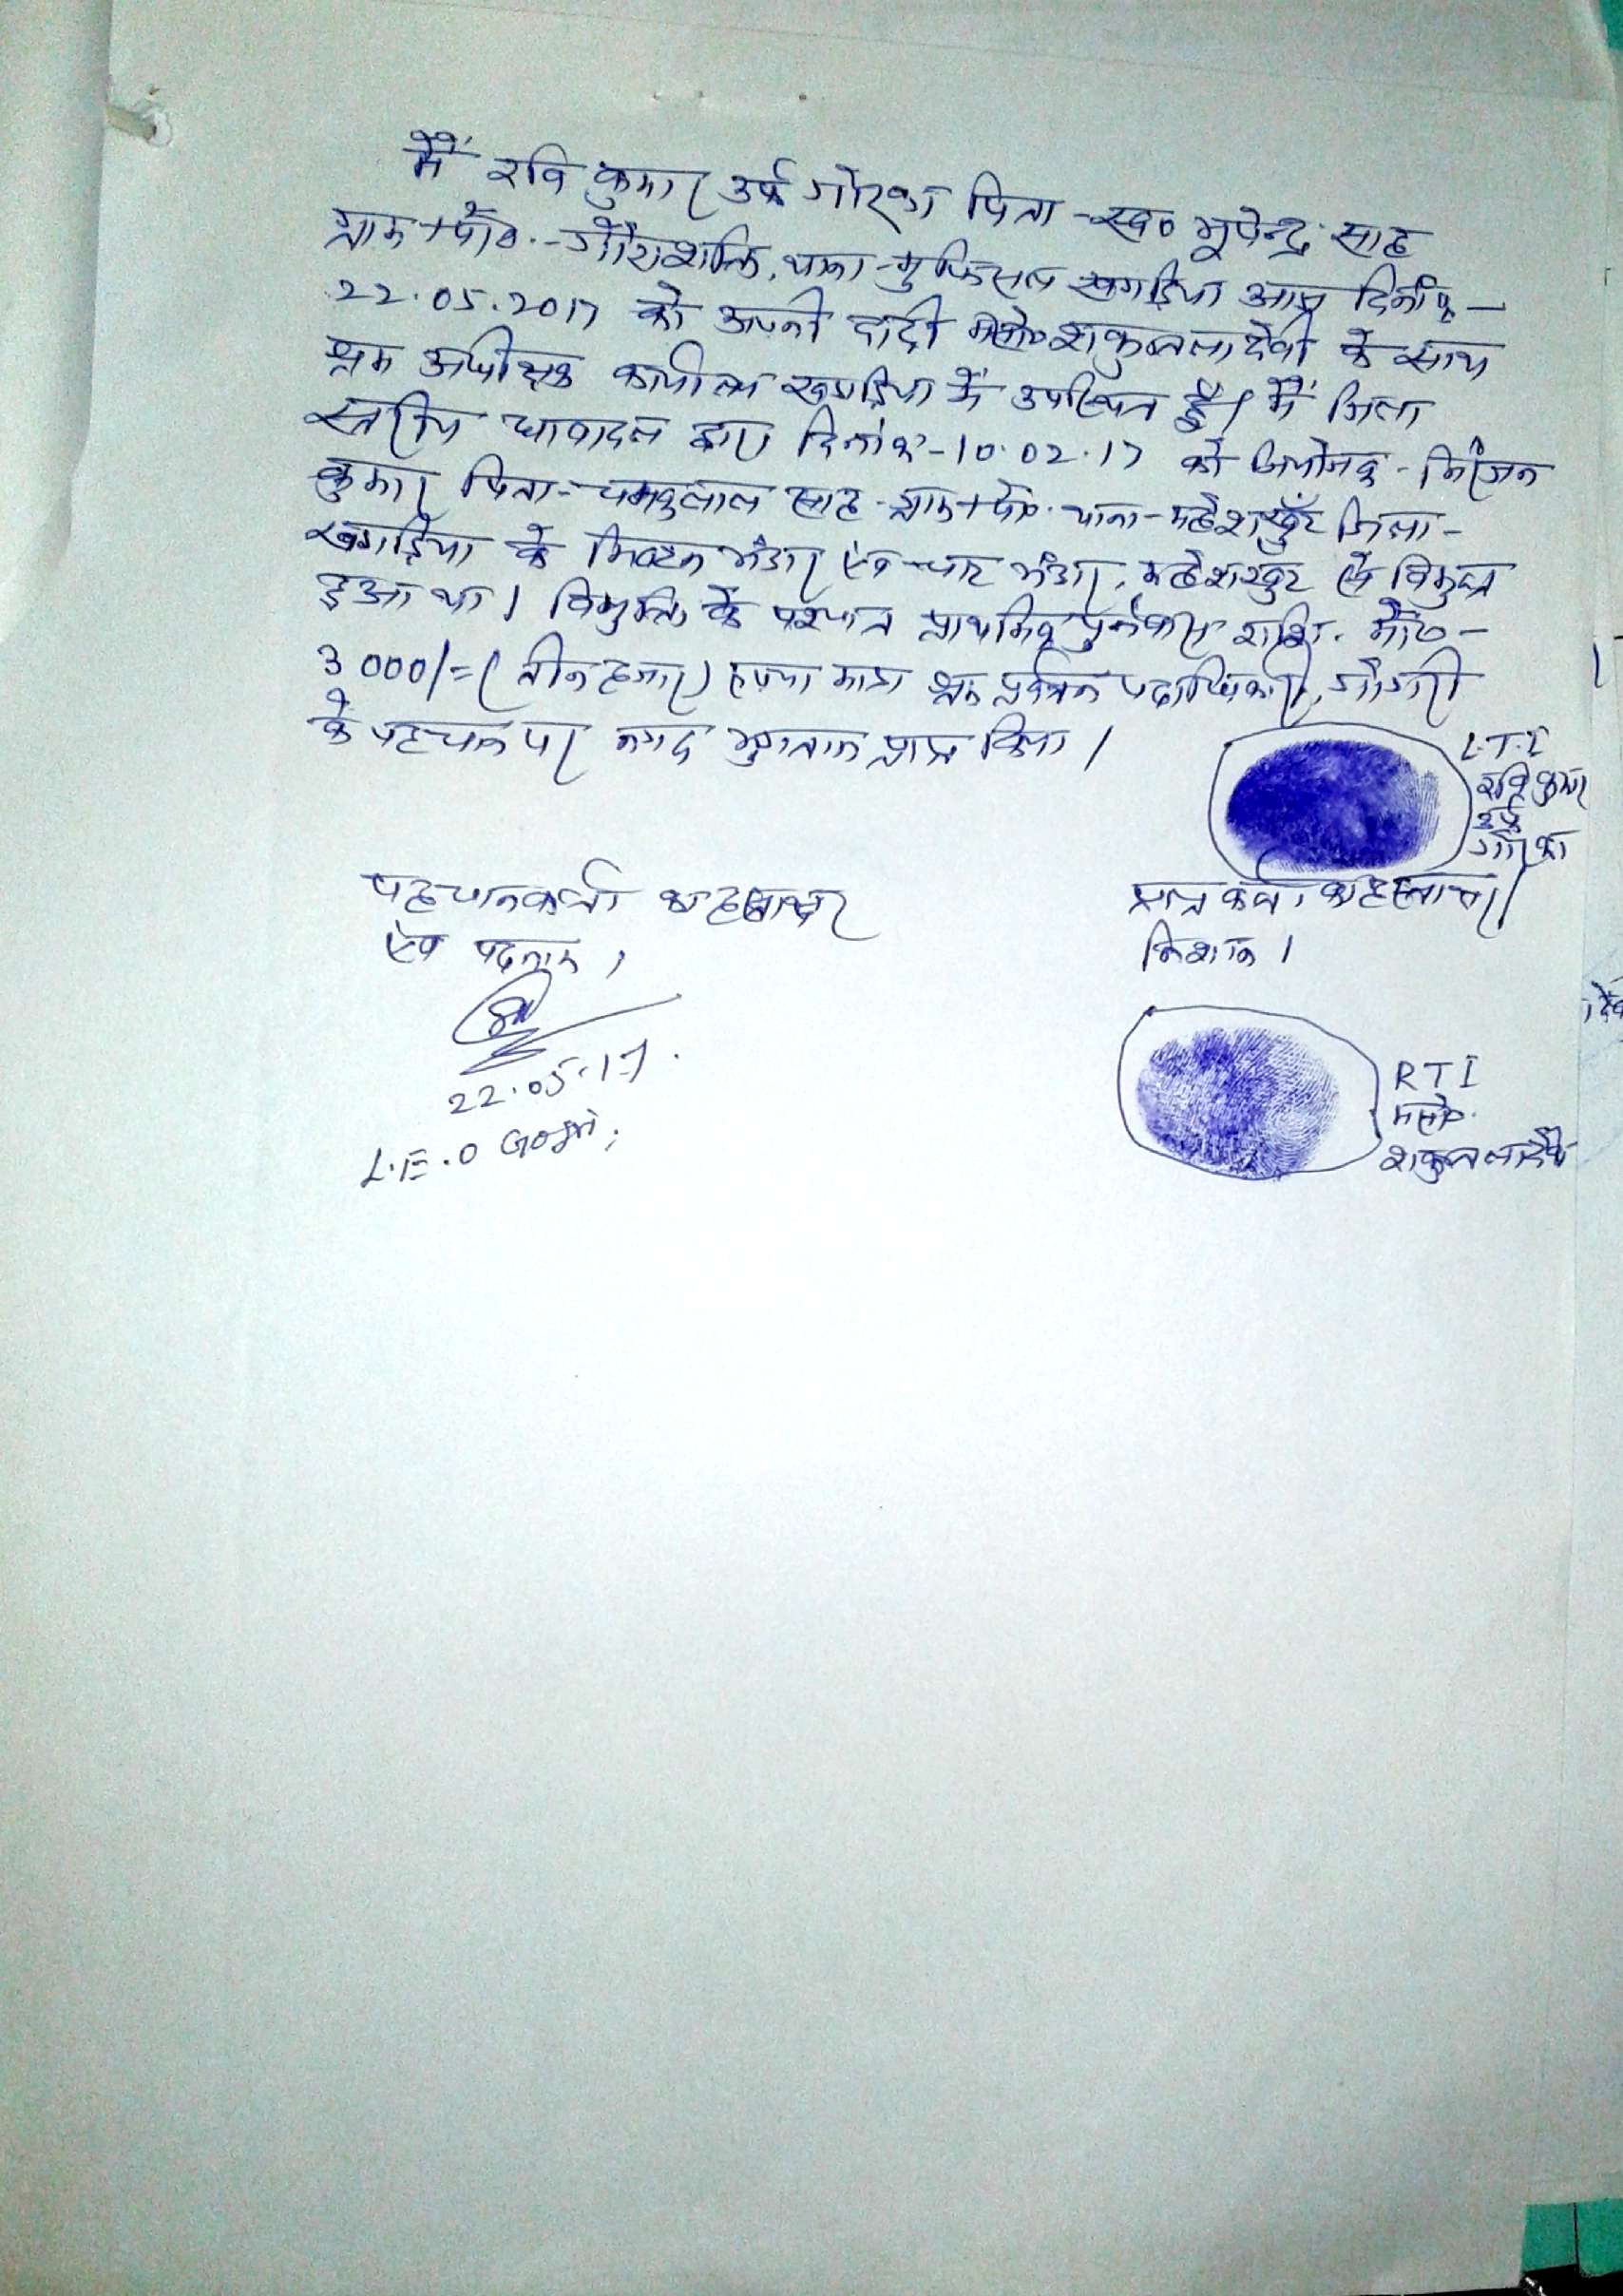 मैं रवि कुमार उर्फ गोरका पिता - स्व० भूपेन्द्र साह
ग्राम + पो०. - गौराशक्ति, थाना - मुफसिल खगड़िया आज दिनांक -
22.05.2017 को अपनी दादी मसो० शकुन्तला देवी के साथ
श्रम अधीक्षक कार्यालय खगड़िया में उपस्थित हूँ। मैं जिला
स्तरीय धावादल द्वारा दिनांक - 10.02.17 को नियोजक - निरंजन
कुमार पिता - साह - ग्राम + पो०. थाना - महेशखूँट जिला -
खगड़िया के मिष्टान भंडार एवं चाट भंडार, महेशखुट से विमुक्त
हुआ था। विमुक्ति के पश्चात प्राथमिक पुर्नवास राशि. मो० -
3000/= (तीन हजार) रूपया मात्र श्रम प्रवर्तन पदाधिकारी, गोगरी
के पहचान पर नगद भुगतान प्राप्त किया।
L.T.I
रवि कुमार
उर्फ
गोरका
पहचानकर्ता का हस्ताक्षर
एवं पदनाम।
प्राप्त कर्ता का हस्ताक्षर/
निशान।
22.05.17.
L.E.O Gogri;
RTI
मसो०.
शकुन्तला देवी